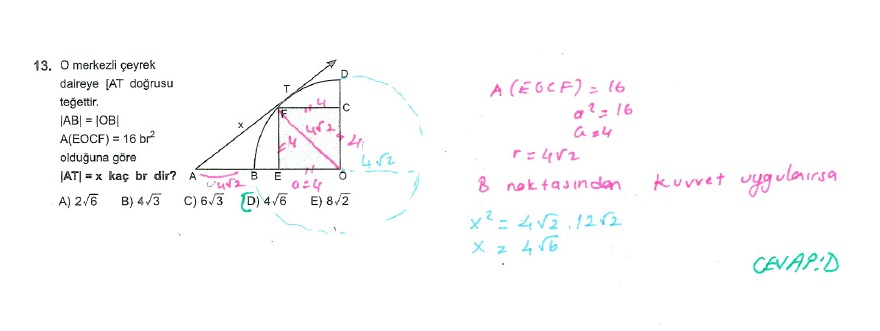 13. O merkezli çeyrek
daireye [AT doğrusu
teğettir.
|AB| = |OB|
A(EOCF) = 16 br²
olduğuna göre
|AT| = x kaç br dir?
A) 2√6 B) 4√3 C) 6√3 D) 4√6 E) 8√2
T
D
C
F
x
A
B
E
O
4
4√2
4
4
4√2
a=4
4√2
A(EOCF) = 16
a² = 16
a = 4
r = 4√2
B noktasından kuvvet uygulanırsa
x² = 4√2 . 12√2
x = 4√6
CEVAP: D